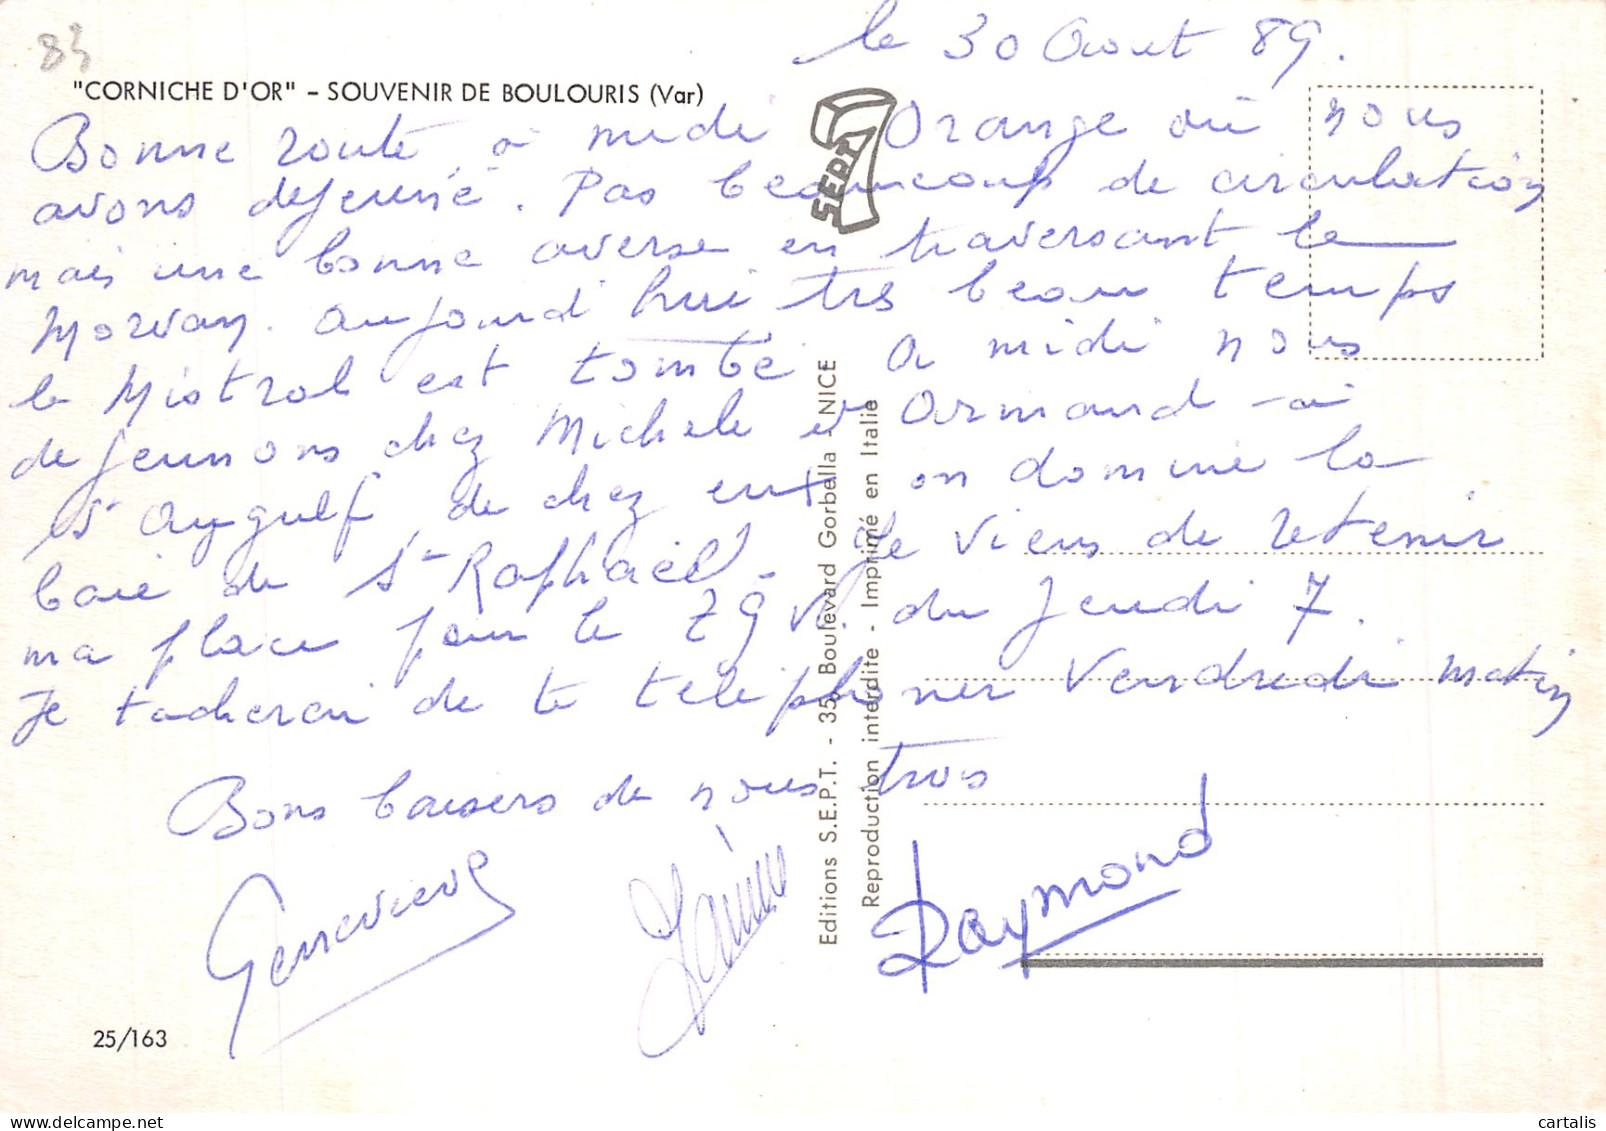 83
le 30 Aout 89.
"CORNICHE D'OR" - SOUVENIR DE BOULOURIS (Var)
Bonne route, à midi Orange où nous
avons dejeuné. Pas beaucoup de circulation
mais une bonne averse en traversant le
Morvan. Aujourd'hui très beau temps
le Mistral est tombé. A midi nous
dejeunons chez Michele et Armand - à
St Aygulf, de chez eux on domine la
baie de St Raphaël. Je viens de retenir
ma place pour le TGV. du Jeudi 7.
Je tacherai de te téléphoner Vendredi matin
Bons baisers de nous trois
Genevieve
Raymond
SEPT
Editions S.E.P.T. - 35, Boulevard Gorbella - NICE
Reproduction interdite - Imprimé en Italie
25/163
cartalis